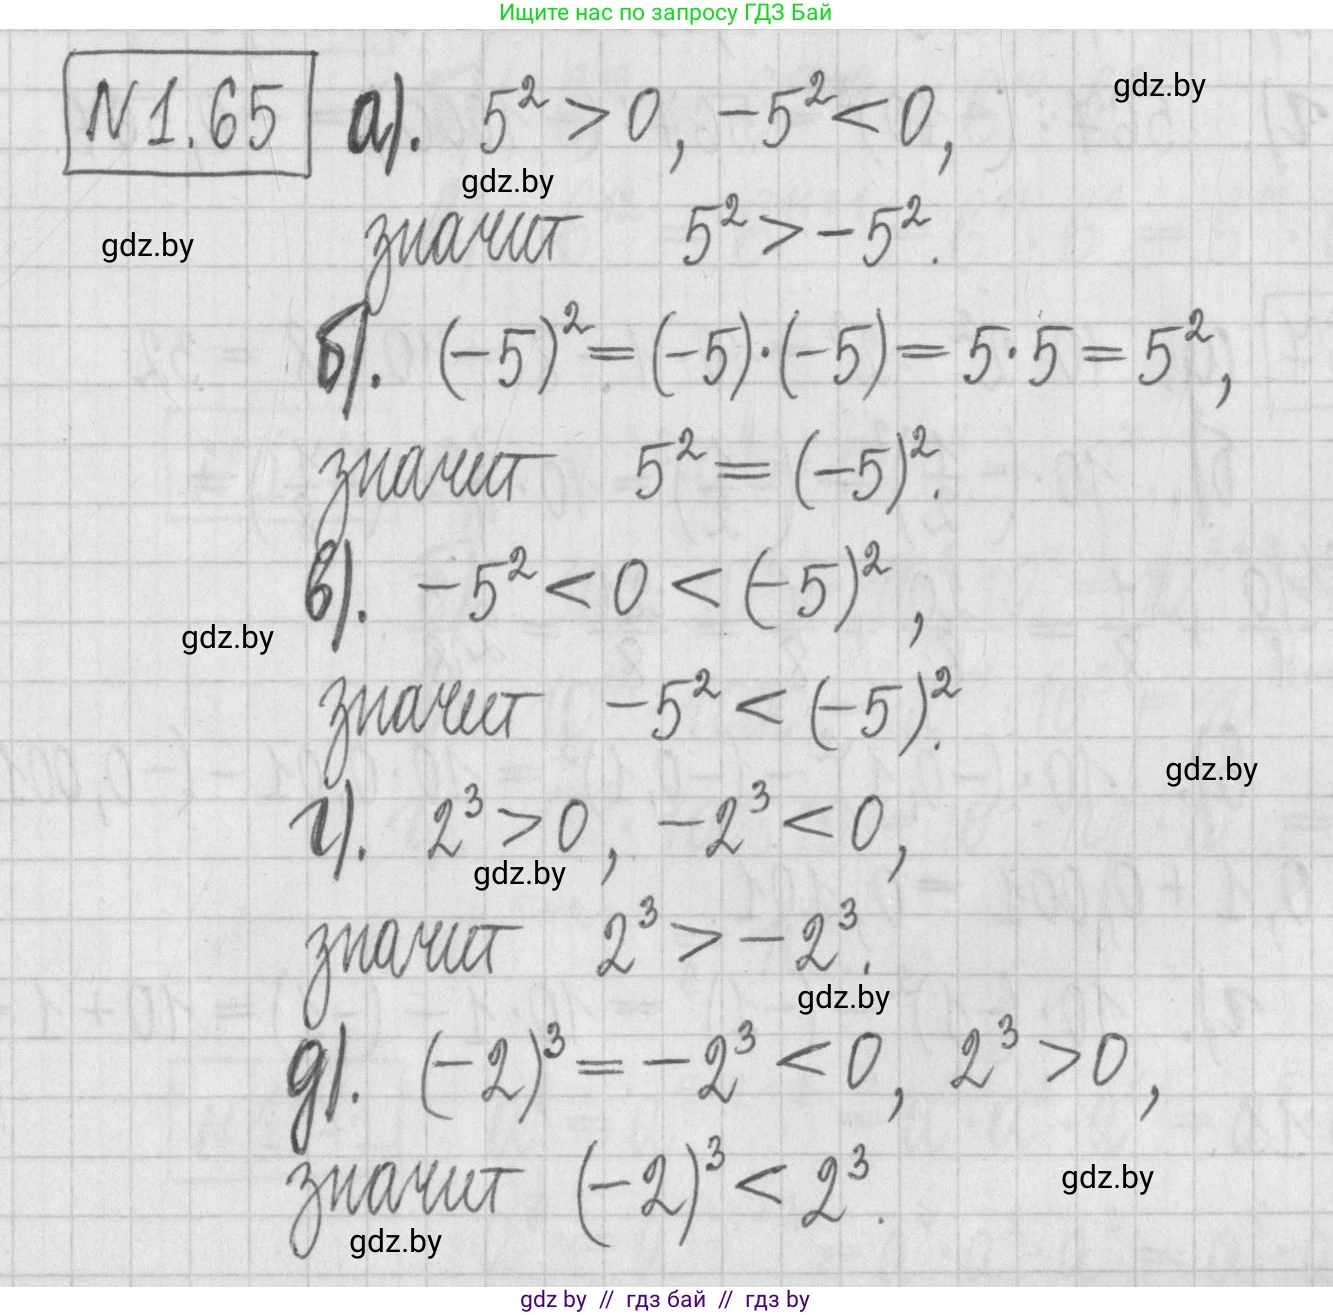 Ищите нас по запросу ГДЗ Бай
N1.65 а). 5² > 0, -5² < 0,
gdz.by
gdz.by
значит 5² > -5².
gdz.by
б). (-5)² = (-5)·(-5) = 5·5 = 5²,
значит 5² = (-5)².
в). -5² < 0 < (-5)²,
gdz.by
значит -5² < (-5)².
gdz.by
г). 2³ > 0, -2³ < 0,
gdz.by
значит 2³ > -2³.
gdz.by
д). (-2)³ = -2³ < 0, 2³ > 0,
значит (-2)³ < 2³.
gdz.by
gdz.by
gdz by // гдз бай // гдз by